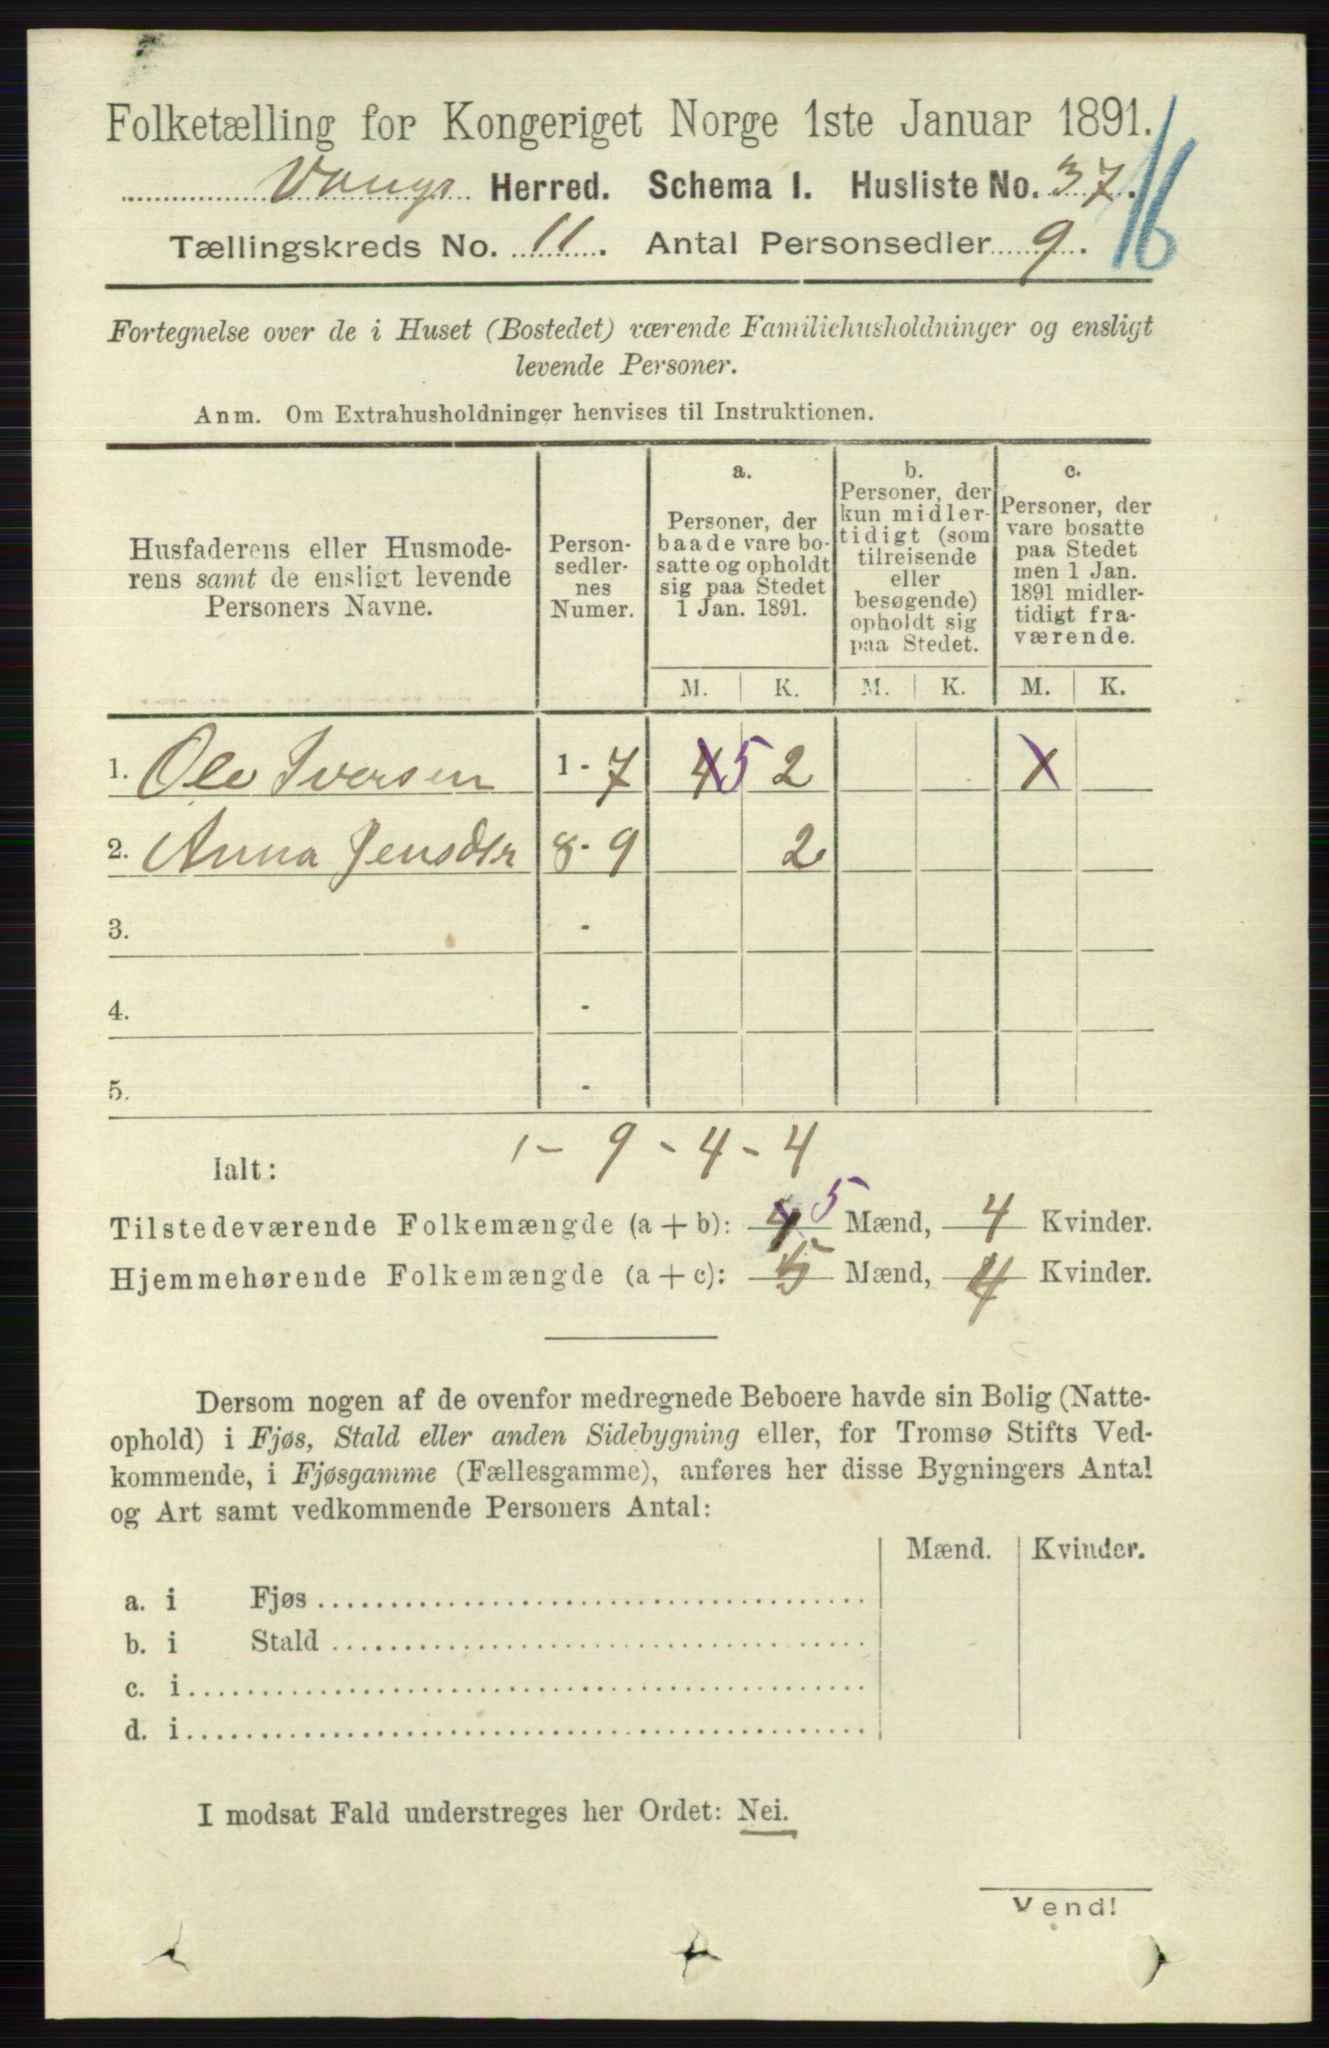 Folketælling for Kongeriget Norge 1ste Januar 1891.
Vangs Herred. Schema I. Husliste No. 37.
16
Tællingskreds No. 11. Antal Personsedler 9.
Fortegnelse over de i Huset (Bostedet) værende Familiehusholdninger og ensligt
levende Personer.
Anm. Om Extrahusholdninger henvises til Instruktionen.
Husfaderens eller Husmode-
rens samt de ensligt levende
Personers Navne.
Person-
sedler-
nes
Numer.
a.
Personer, der
baade vare bo-
satte og opholdt
sig paa Stedet
1 Jan. 1891.
b.
Personer, der
kun midler-
tidigt (som
tilreisende
eller
besøgende)
opholdt sig
paa Stedet.
c.
Personer, der
vare bosatte
paa Stedet
men 1 Jan.
1891 midler-
tidigt fra-
værende.
M. K. M. K. M. K.
1. Ole Iversen 1 - 7 4 5 2
2. Anna Jensdtr 8 - 9 2
3. -
4. -
5. -
1 - 9 - 4 - 4
Ialt:
Tilstedeværende Folkemængde (a + b): 4 5 Mænd, 4 Kvinder.
Hjemmehørende Folkemængde (a + c): 5 Mænd, 4 Kvinder.
Dersom nogen af de ovenfor medregnede Beboere havde sin Bolig (Natte-
ophold) i Fjøs, Stald eller anden Sidebygning eller, for Tromsø Stifts Ved-
kommende, i Fjøsgamme (Fællesgamme), anføres her disse Bygningers Antal
og Art samt vedkommende Personers Antal:
Mænd. Kvinder.
a. i Fjøs
b. i Stald
c. i
d. i
I modsat Fald understreges her Ordet: Nei.
Vend!